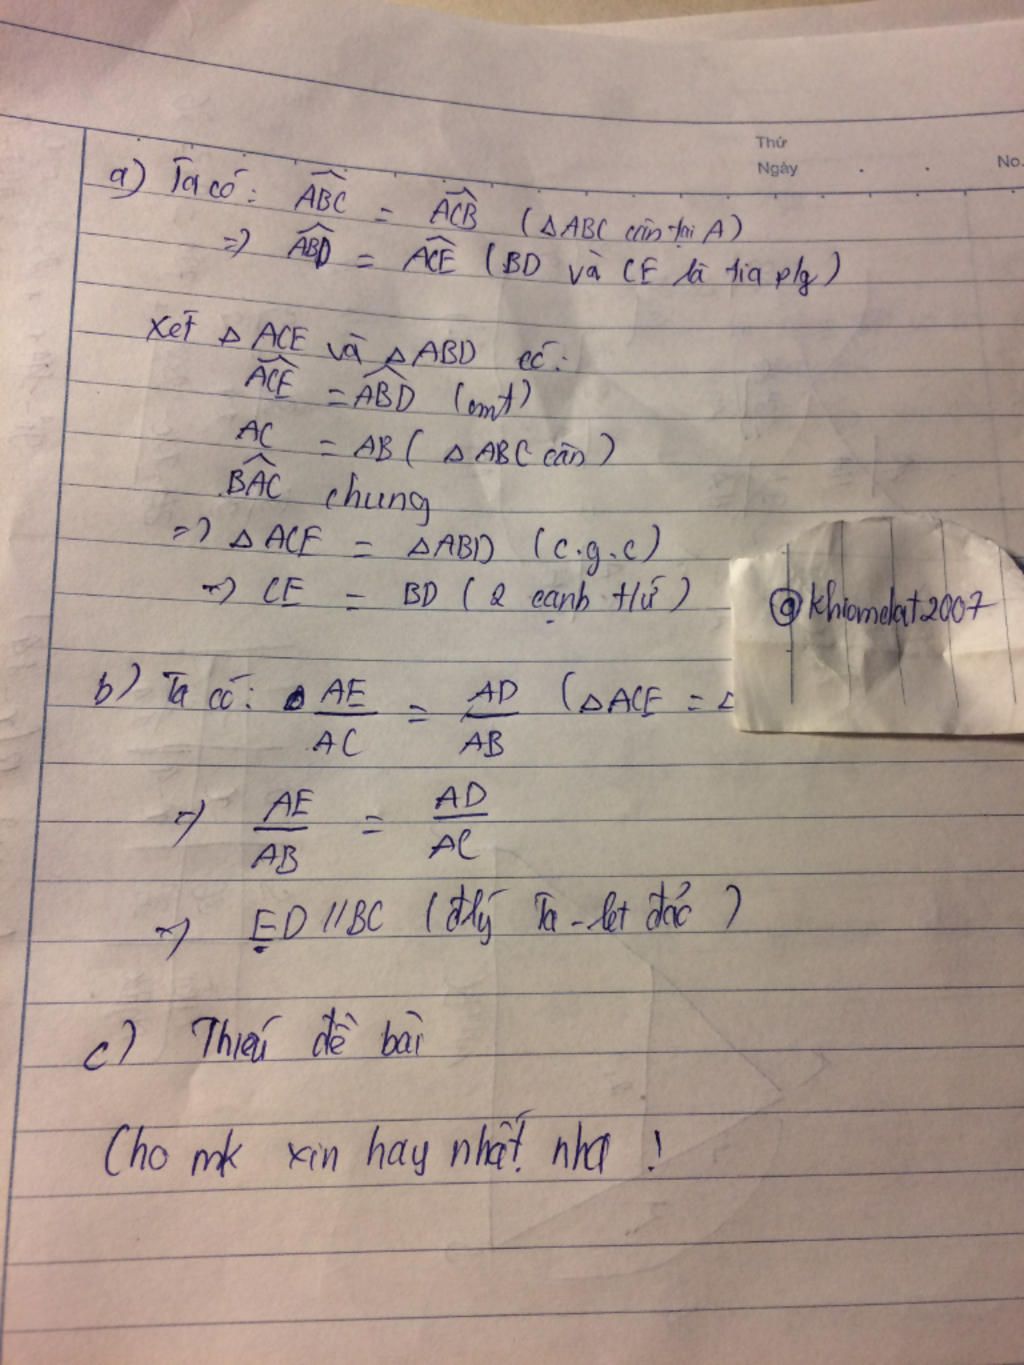 Thứ
Ngày . . No.
a) Ta có: ABC = ACB (△ABC cân tại A)
=> ABD = ACE (BD và CE là tia p/g)
Xét △ACE và △ABD có:
ACE = ABD (cmt)
AC = AB (△ABC cân)
BAC chung
=> △ACE = △ABD (c.g.c)
=> CE = BD (2 cạnh t/ứ)
@khiomelat2007
b) Ta có: AE/AC = AD/AB (△ACE = △
=> AE/AB = AD/AC
=> ED // BC (đlý Ta-let đảo)
c) Thiếu đề bài
Cho mk xin hay nhất nha !